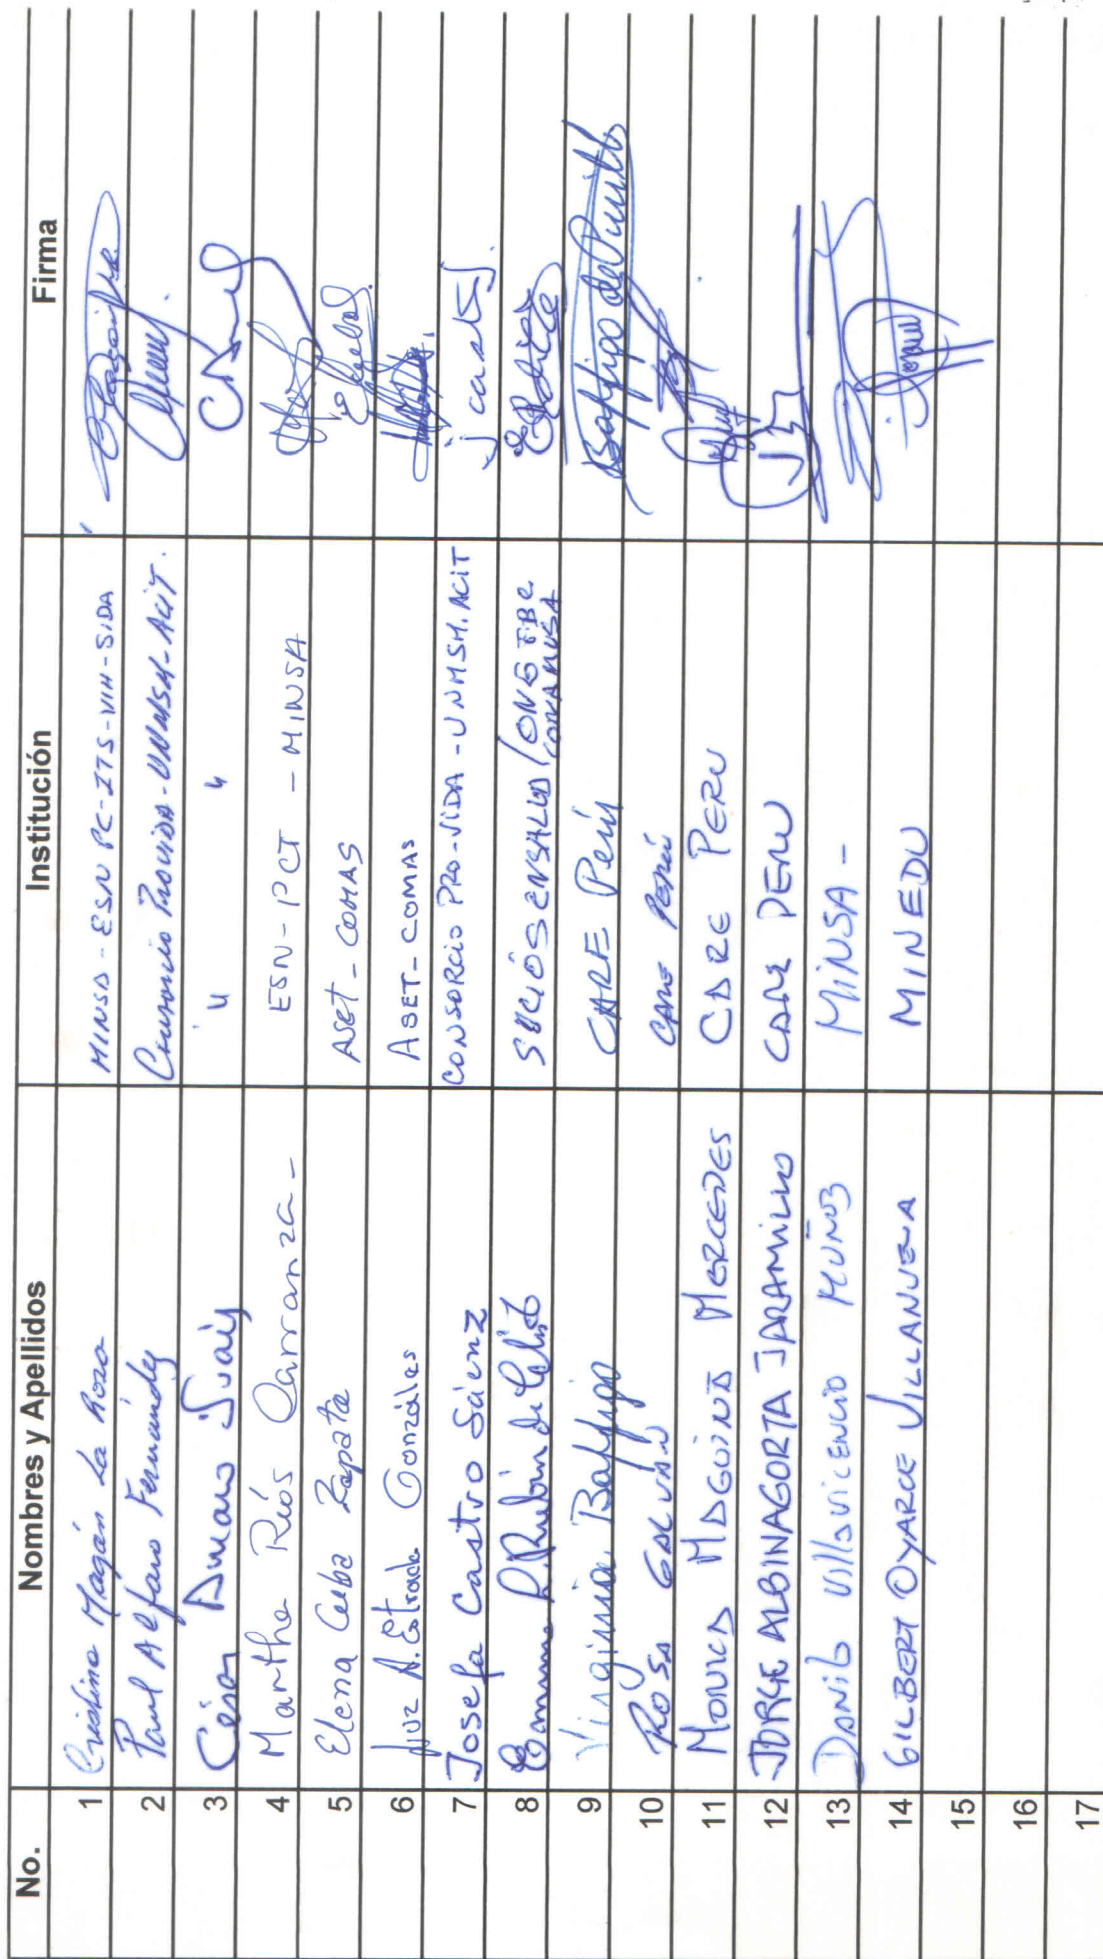 No. Nombres y Apellidos Institución Firma
1 Cristina Magán La Rosa MINSA - ESN PC-ITS-VIH-SIDA
2 Paul Alfaro Fernández Consorcio Provida - UNMSM - ACIT.
3 César Amaro Suais " "
4 Martha Ríos Carranza - ESN - PCT - MINSA
5 Elena Cuba Zapata ASET - COMAS
6 Luz A. Estrada Gonzáles ASET - COMAS
7 Josefa Castro Sáenz CONSORCIO PRO-VIDA - UNMSM. ACIT j castS.
8 Emma Rubín de Celis SOCIOS EN SALUD / ONG TBC CONAMUSA
9 Virginia Baffigo CARE Perú Baffigo de Pinillos
10 ROSA GALVÁN CARE Perú
11 MONICA MAGUIÑA MERCEDES CARE PERU
12 JORGE ALBINAGORTA JARAMILLO CARE PERU
13 DANILO VILLAVICENCIO MUÑOZ MINSA -
14 GILBERT OYARCE VILLANUEVA MINEDU
15
16
17